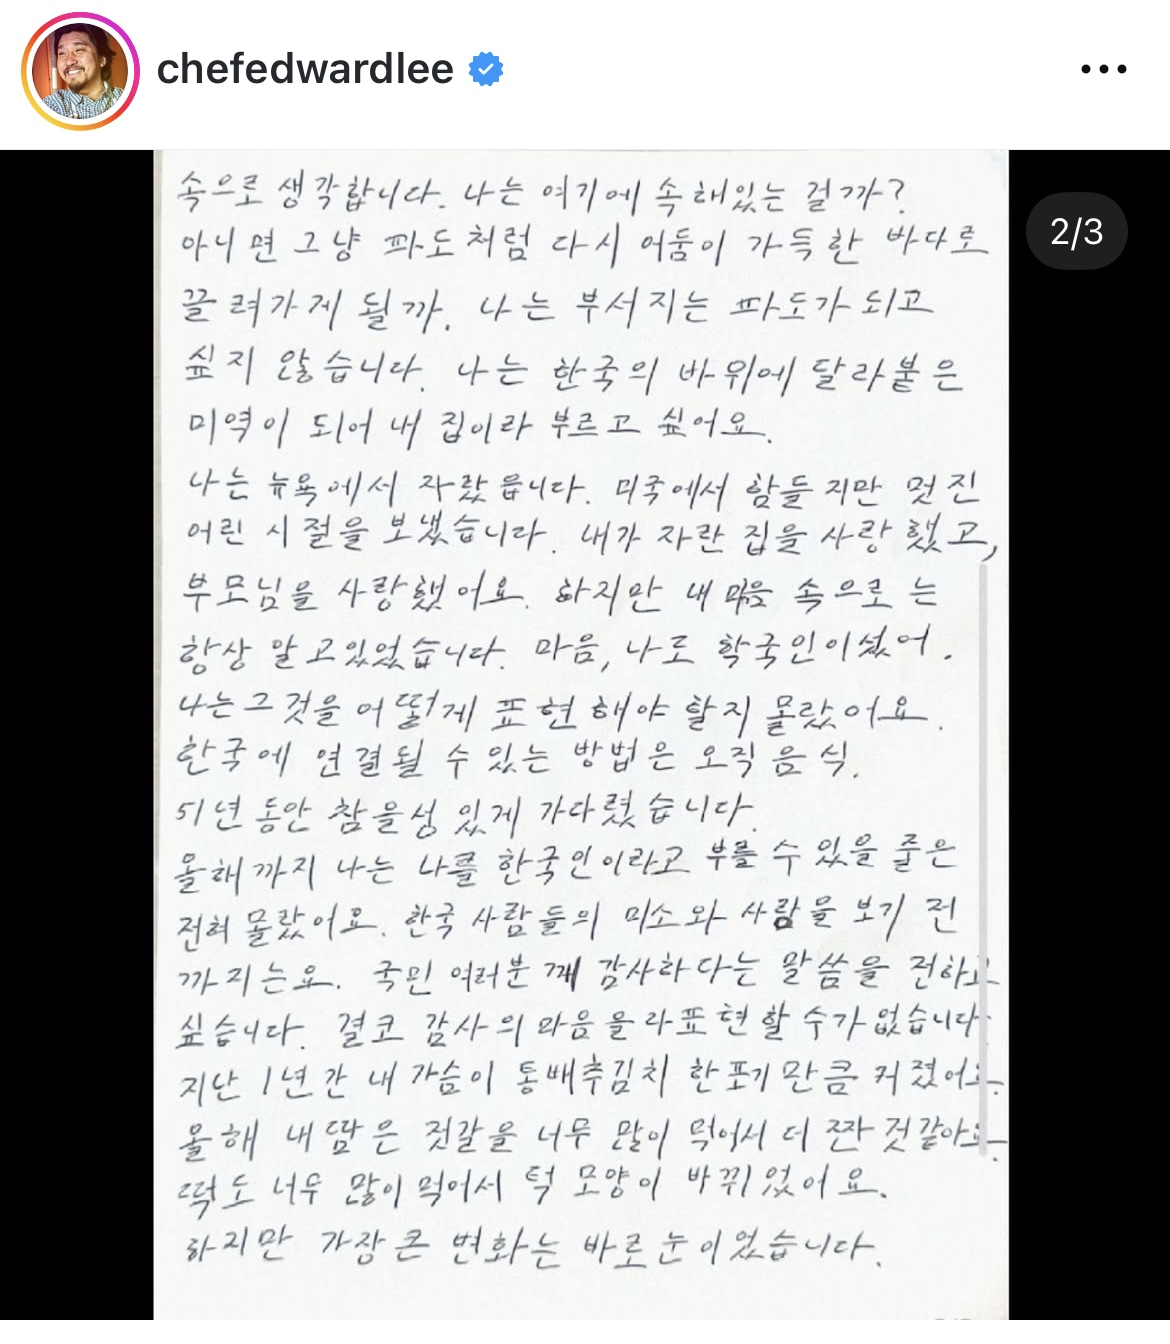 chefedwardlee
2/3
속으로 생각합니다. 나는 여기에 속해있는 걸까?
아니면 그냥 파도처럼 다시 어둠이 가득한 바다로
끌려가게 될까. 나는 부서지는 파도가 되고
싶지 않습니다. 나는 한국의 바위에 달라붙은
미역이 되어 내 집이라 부르고 싶어요.
나는 뉴욕에서 자랐읍니다. 미국에서 함들지만 멋진
어린 시절을 보냈습니다. 내가 자란 집을 사랑했고,
부모님을 사랑했어요. 하지만 내 마음 속으로는
항상 알고있었습니다. 마음, 나로 학국인이셨어.
나는 그것을 어떻게 표현해야 할지 몰랐어요.
한국에 연결될 수 있는 방법은 오직 음식.
51년 동안 참을성 있게 가다렸습니다.
올해까지 나는 나를 한국인이라고 부를 수 있을 줄은
전혀 몰랐어요. 한국 사람들의 미소와 사람을 보기 전
까지는요. 국민 여러분께 감사하다는 말씀을 전하고
싶습니다. 결코 감사의 마음을라표현할 수가 없습니다.
지난 1년간 내 가슴이 통배추김치 한 포기만큼 커졌어요.
올해 내 땀은 젓갈을 너무 많이 먹어서 더 짠 것같아요.
떡도 너무 많이 먹어서 턱 모양이 바뀌었어요.
하지만 가장 큰 변화는 바로 눈이었습니다.